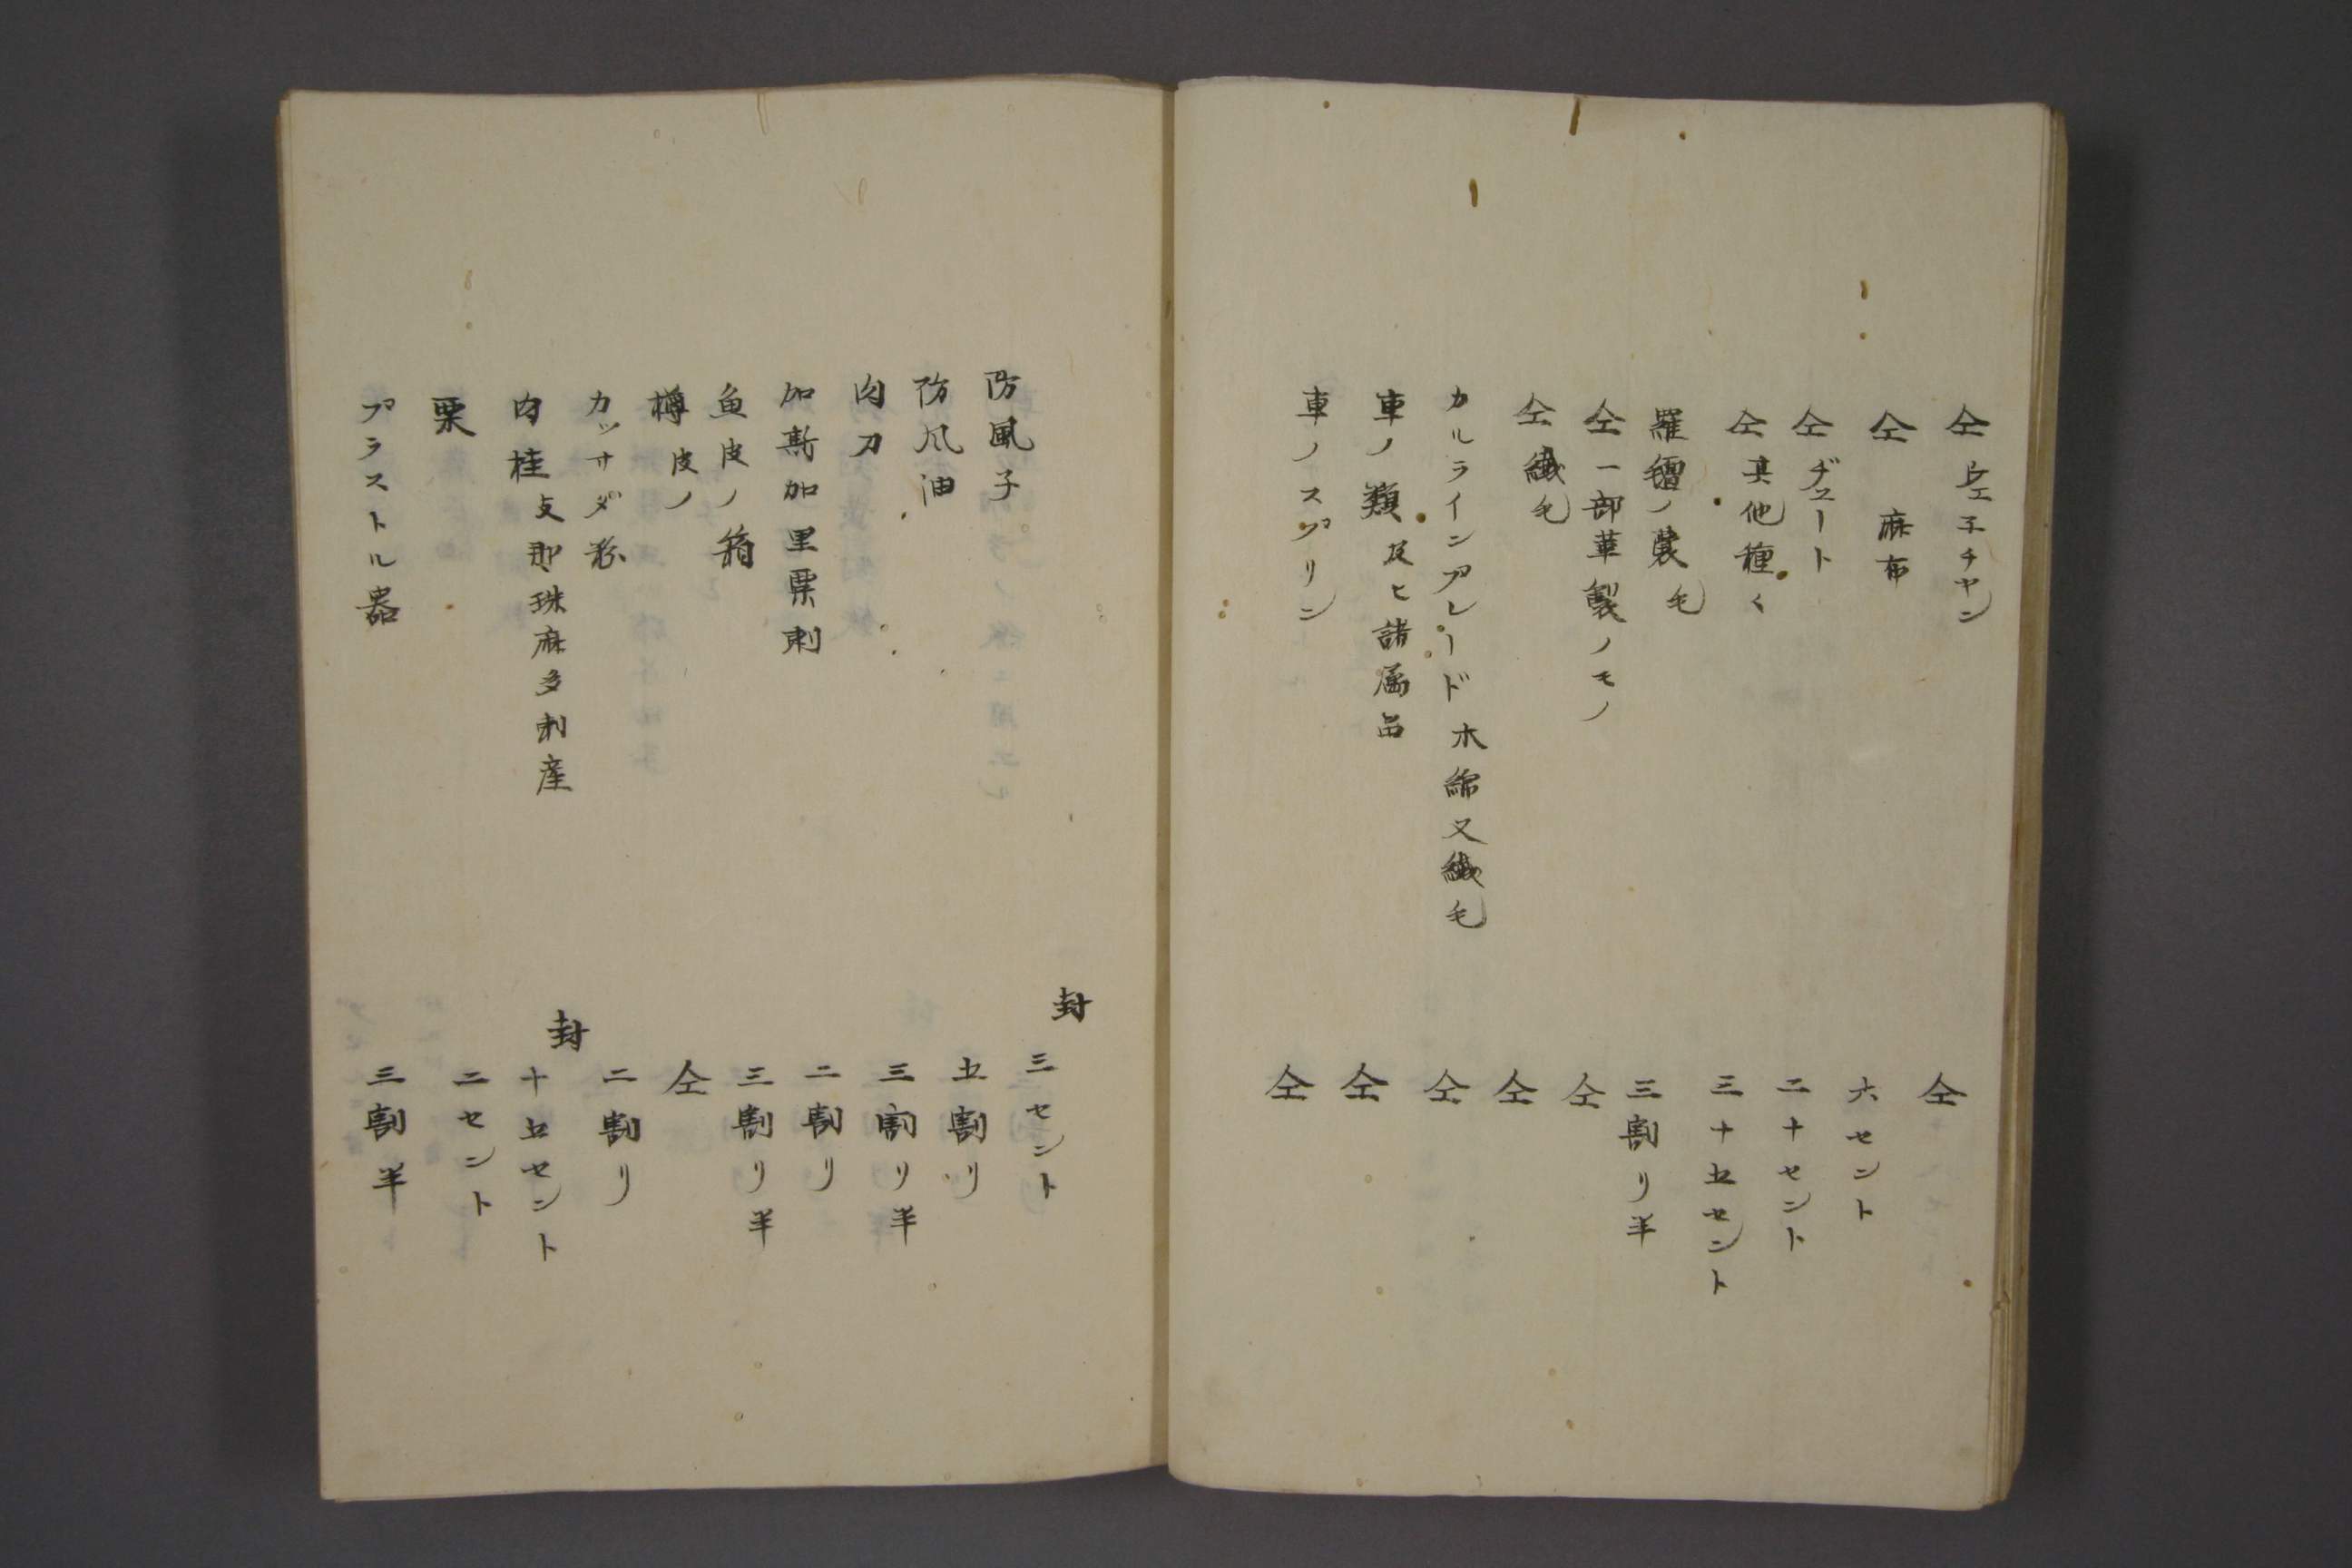 仝ヱ子チヤン　仝
仝　麻布　六セント
仝ヂュート　二十セント
仝其他種〻　三十五セント
羅氊ノ襞毛　三割リ半
仝一部革製ノモノ　仝
仝織毛　仝
カルラインアレード　木綿又織毛　仝
車ノ類及ヒ諸属品　仝
車ノスプリン　仝
防風子　封　三セント
防風油　五割リ
肉刀　三割リ半
加斯加里栗刺　二割リ
魚皮ノ箱　三割リ半
樽皮ノ　仝
カツサダ粉　二割リ
肉桂支那珠麻多刺産　封　十五セント
栗　二セント
プラストル器　三割半